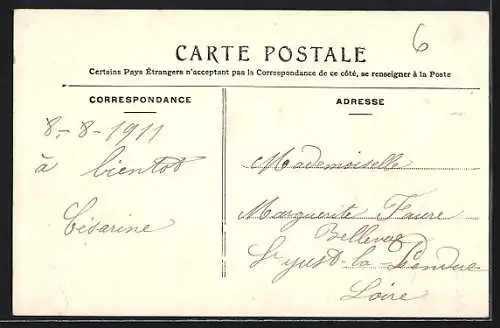 6
CARTE POSTALE
Certains Pays Étrangers n'acceptant pas la Correspondance de ce côté, se renseigner à la Poste
CORRESPONDANCE
8-8-1911
à bientot
Césarine
ADRESSE
Mademoiselle
Marguerite Faure
Bellevue
St just-la-Pendue
Loire